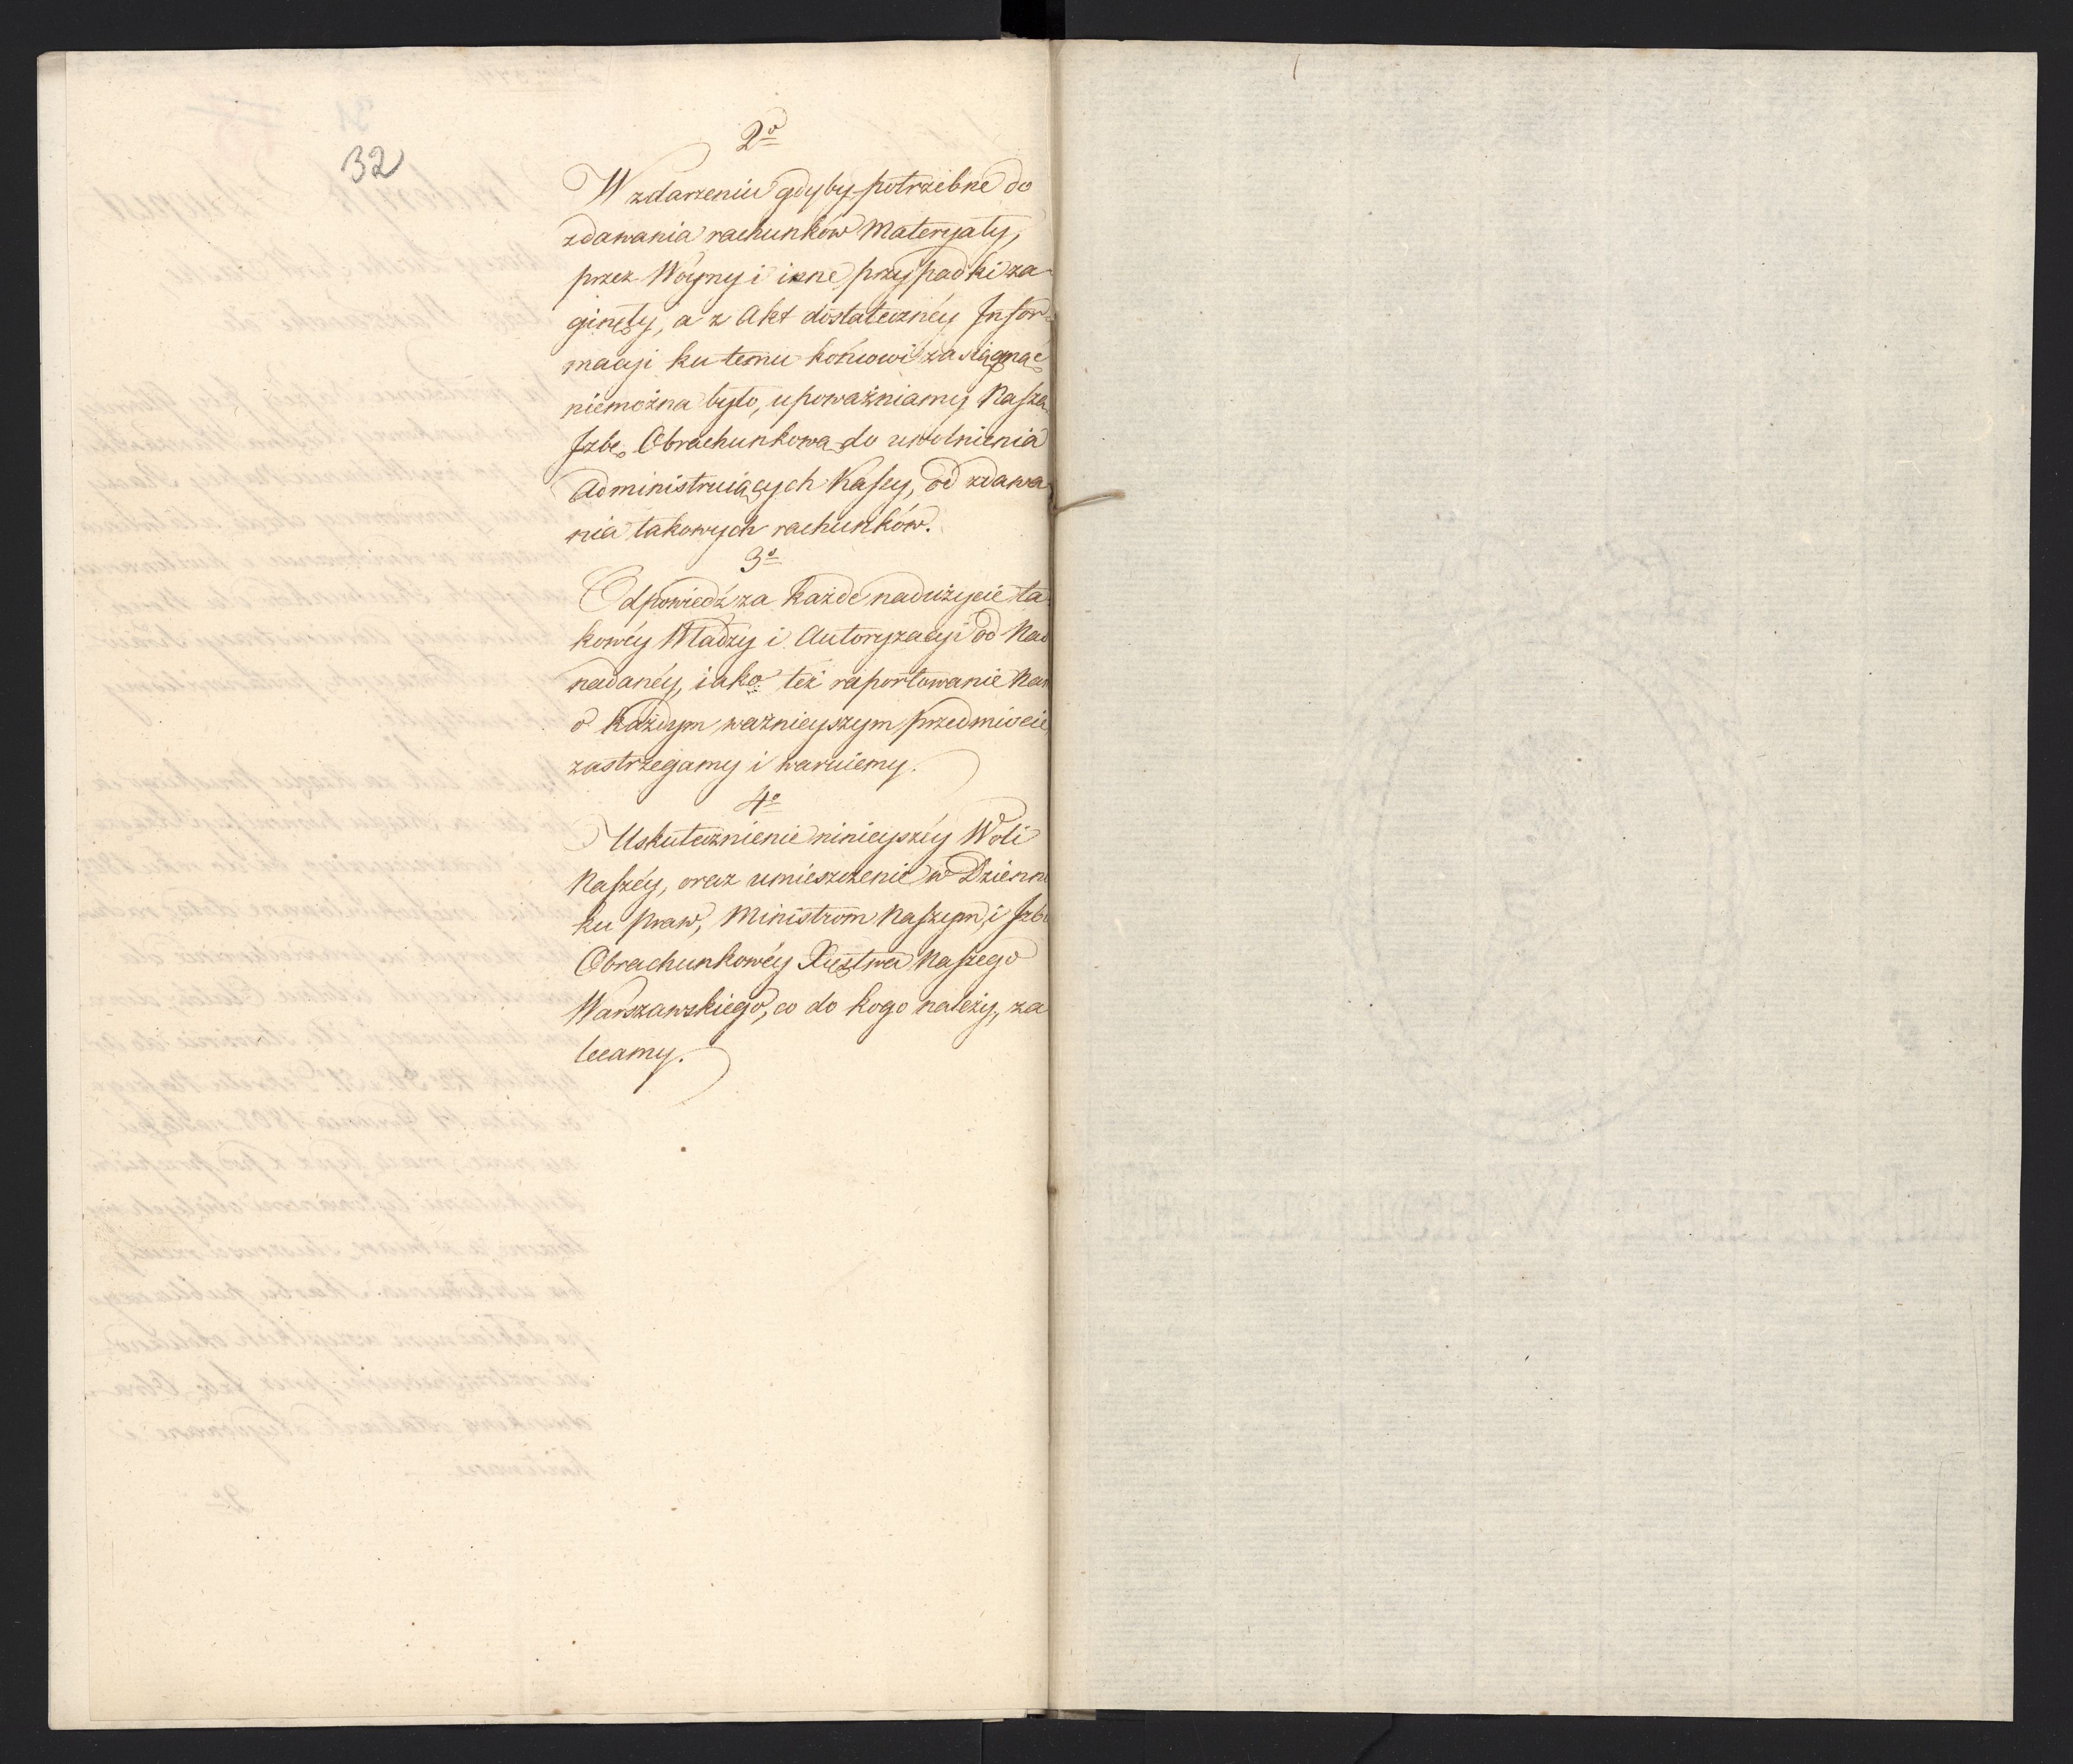 32
2º
W zdarzeniu gdyby potrzebne do
zdawania rachunków Materyały,
przez Woyny i inne przypadki za-
ginęły, a z Akt dostateczney Infor-
macyi ku temu końcowi zasiągnąć
niemożna było, upoważniamy Naszą
Jzbę Obrachunkową do uwolnienia
Administruiących Kassy, od zdawa
nia takowych rachunków.
3º
Odpowiedź za każde nadużycie ta-
kowéy Władzy i Autoryzacyi od Nas
nadanéy, iako też raportowanie Nam
o każdym ważnieyszym przedmiocie
zastrzegamy i waruiemy.
4º
Uskutecznienie ninieyszéy Woli
Naszéy, oraz umieszczenie w Dzienni
ku Praw, Ministrom Naszym, i Jzbie
Obrachunkowéy Xięstwa Naszego
Warszawskiego, co do kogo należy, za
lecamy.